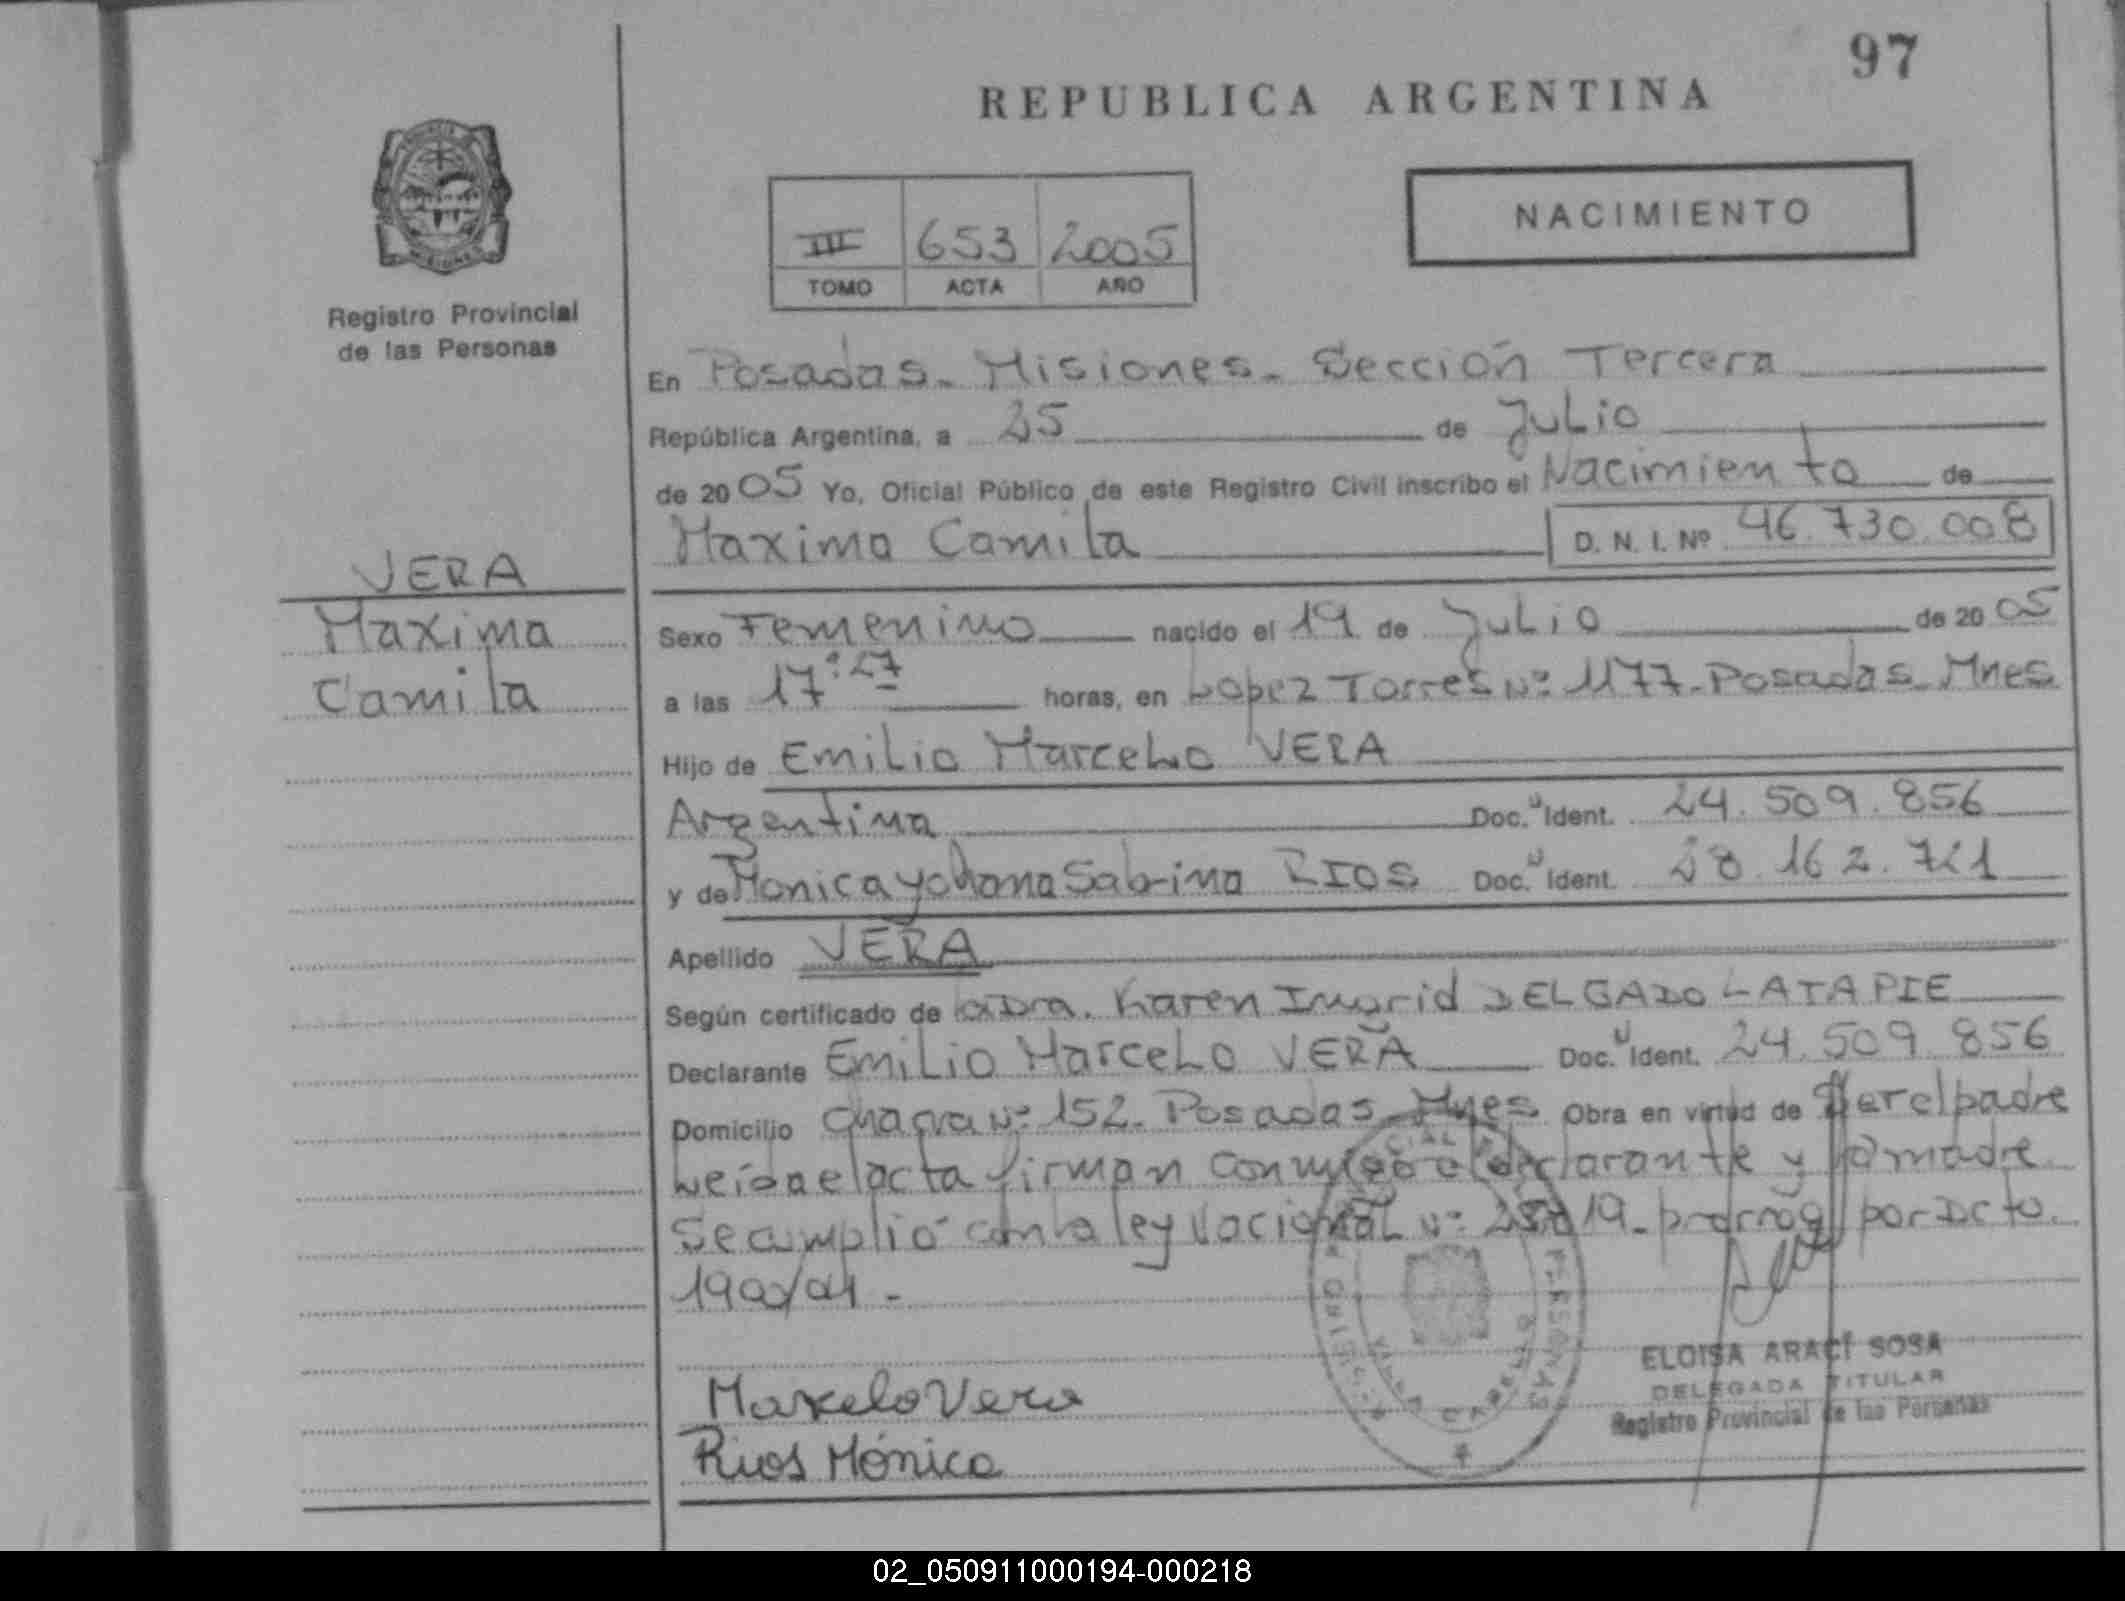 97
REPUBLICA ARGENTINA
NACIMIENTO
III 653 2005
TOMO ACTA AÑO
Registro Provincial
de las Personas
En Posadas - Misiones - Sección Tercera
República Argentina, a 25 de Julio
de 2005 Yo, Oficial Público de este Registro Civil inscribo el Nacimiento de
Maxima Camila D. N. I. Nº 46.730.008
VERA
Maxima
Camila
Sexo Femenino nacido el 19 de Julio de 2005
a las 17:27 horas, en Lopez Torres Nº 1177 - Posadas - Mnes
Hijo de Emilio Marcelo VERA
Argentina Doc. U Ident. 24.509.856
y de Monica Yohana Sabrina RIOS Doc. U Ident. 28.162.721
Apellido VERA
Según certificado de la Dra. Karen Ingrid DELGADO LATAPIE
Declarante Emilio Marcelo VERA Doc. U Ident. 24.509.856
Domicilio Chacra Nº 152 - Posadas - Mnes Obra en virtud de Ser el padre
Leida el acta firman conmigo el declarante y la madre
Se cumplió con la ley Nacional Nº prorrog por Dcto.
Marcelo Vera
Rios Mónica
ELOISA ARACÍ SOSA
DELEGADA TITULAR
Registro Provincial de las Personas
02_050911000194-000218